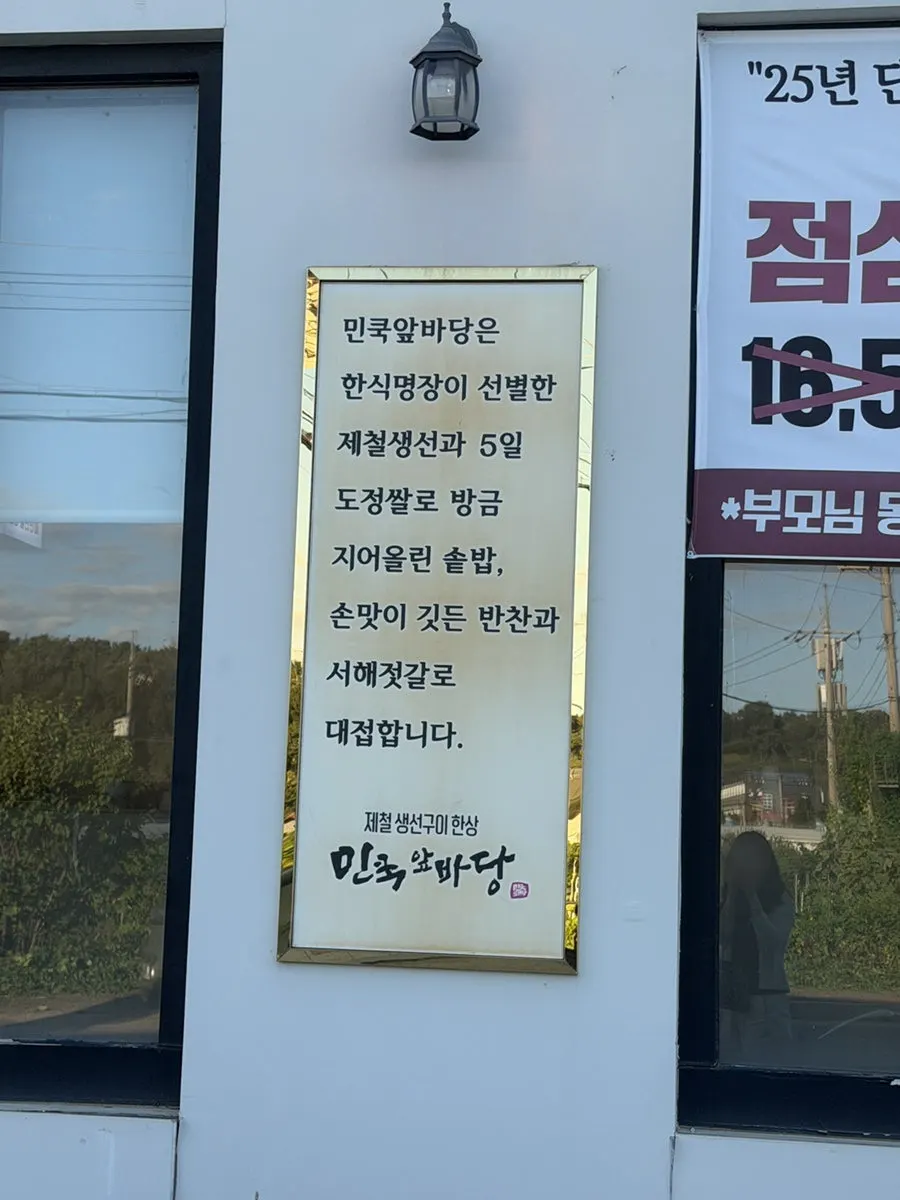 민쿡앞바당은
한식명장이 선별한
제철생선과 5일
도정쌀로 방금
지어올린 솥밥,
손맛이 깃든 반찬과
서해젓갈로
대접합니다.
제철 생선구이 한상
민쿡앞바당
"25년
16,5
*부모님